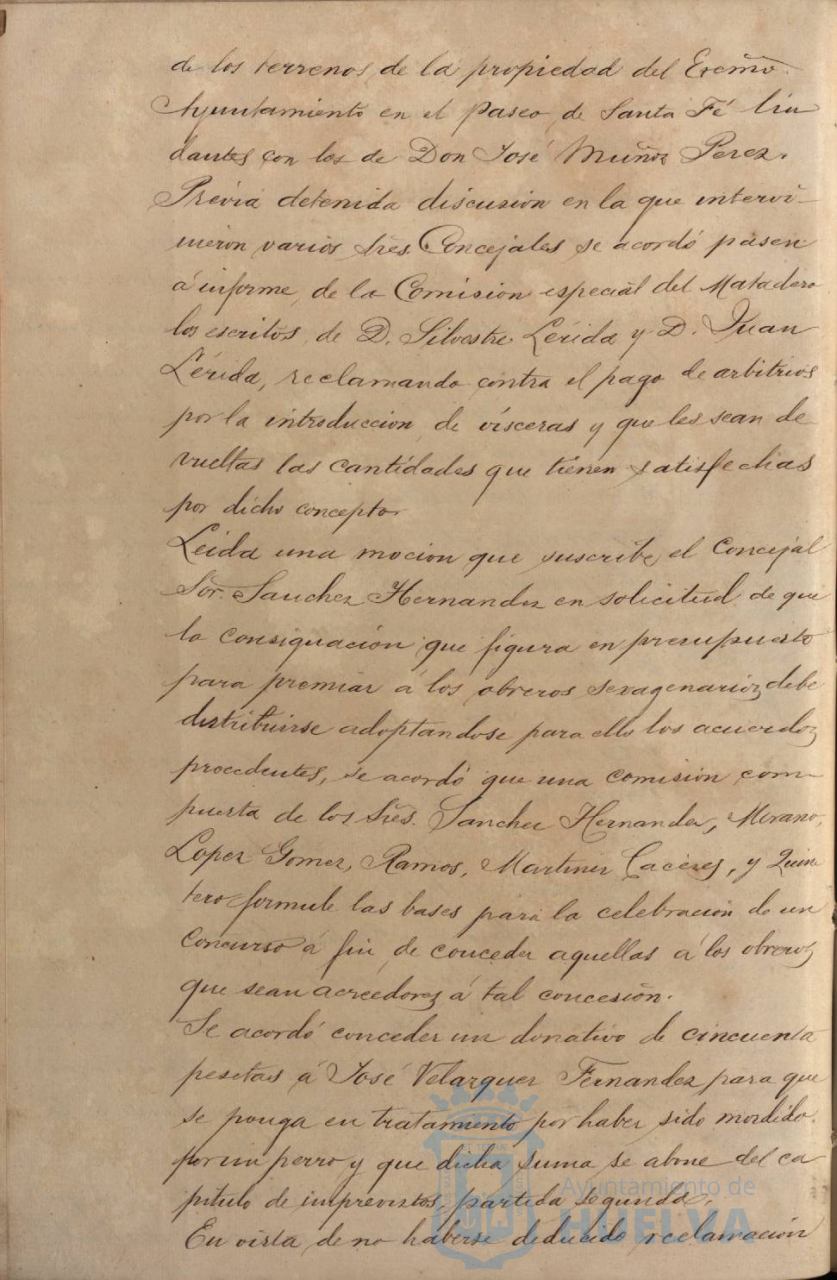 de los terrenos, de la propiedad del Excmo.
Ayuntamiento en el Paseo, de Santa Fé lin
dantes con los de Don José Muñoz Perez.
Prévia detenida discusion en la que intervi-
nieron varios Sres. Concejales se acordó pasen
á informe, de la Comisión especial del Matadero
los escritos, de D. Silvestre Lérida y D. Juan
Lérida, reclamando contra el pago de arbitrios
por la introduccion, de vísceras y que les sean de
vueltas las cantidades que tienen satisfechas
por dicho concepto.
Leida una mocion que suscribe, el Concejal
Sor. Sanchez Hernandez en solicitud de que
la consignación que figura en presupuesto
para premiar á los obreros sexagenarios debe
distribuirse adoptandose para ello los acuerdos
procedentes, se acordó que una comisión com-
puesta de los Sres. Sanchez Hernandez, Morano,
Lopez Gomez, Ramos, Martinez Caceres, y Quin
tero formule las bases para la celebración de un
concurso á fin, de conceder aquellas á los obreros
que sean acreedores á tal concesión.
Se acordó conceder un donativo de cincuenta
pesetas á José Velazquez Fernandez para que
se ponga en tratamiento por haber sido mordido
por un perro y que dicha suma se abone del ca
pitulo de imprevistos, partida segunda.
En vista, de no haberse deducido reclamación
Ayuntamiento de
HUELVA